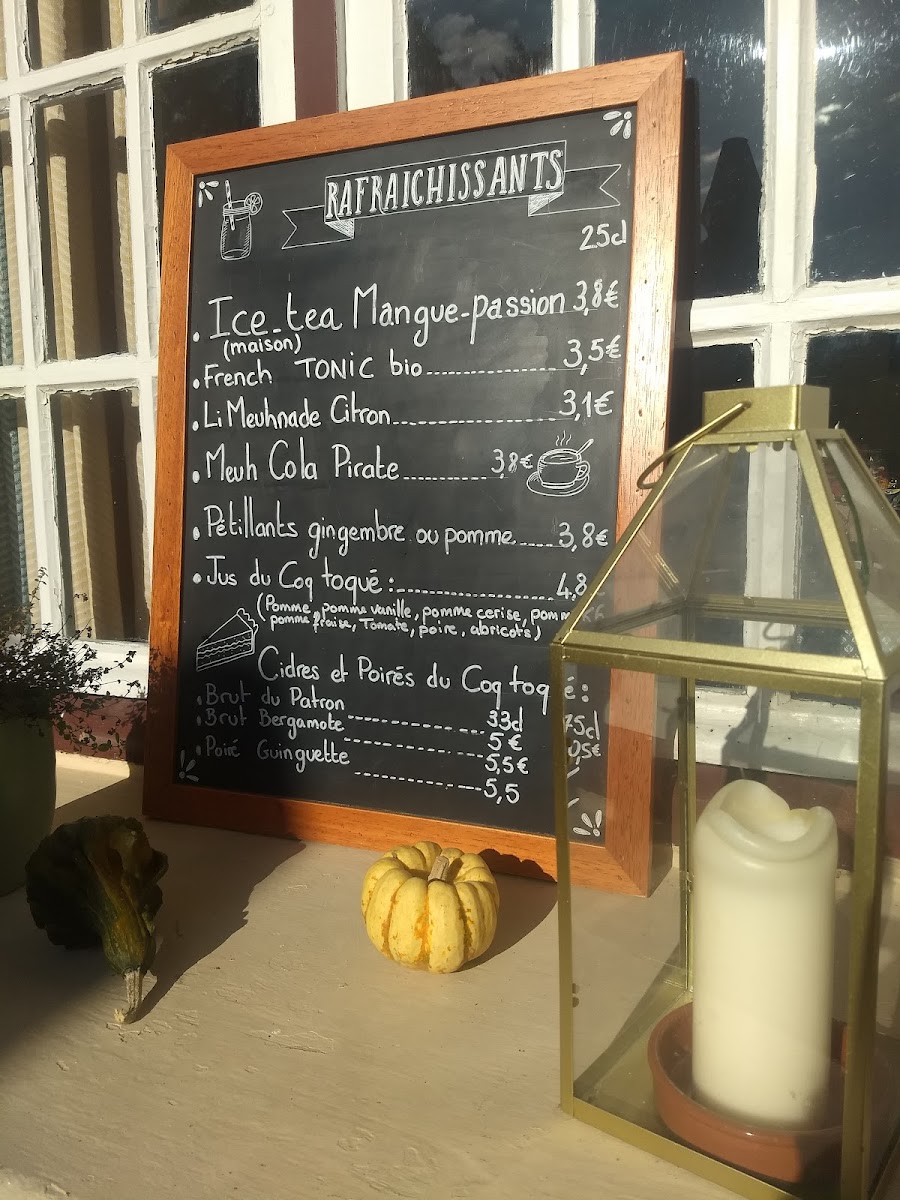 RAFRAICHISSANTS
25cl
• Ice-tea Mangue-passion 3,8€
(maison)
• French TONIC bio 3,5€
• Li Meuhnade Citron 3,1€
• Meuh Cola Pirate 3,8€
• Pétillants gingembre ou pomme 3,8€
• Jus du Coq toqué : 4,8
(Pomme, pomme vanille, pomme cerise,
pomme fraise, Tomate, poire, abricots)
Cidres et Poirés du Coq toqué :
• Brut du Patron 33cl 75cl
• Brut Bergamote 5€
• Poiré Guinguette 5,5€
5,5